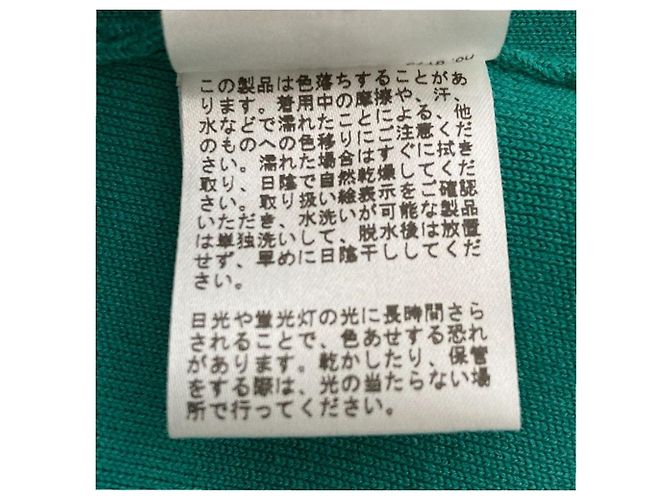 この製品は色落ちすることがあ
ります。着用中の摩擦や、汗、
水などで濡れたことによる、他
のものへの色移りにご注意くだ
さい。濡れた場合はすぐに拭き
取り、日陰で自然乾燥してくだ
さい。取り扱い絵表示をご確認
いただき、水洗いが可能な製品
は単独洗いして、脱水後は放置
せず、早めに日陰干ししてくだ
さい。
日光や蛍光灯の光に長時間さら
されることで、色あせする恐れ
があります。乾かしたり、保管
をする際は、光の当たらない場
所で行ってください。